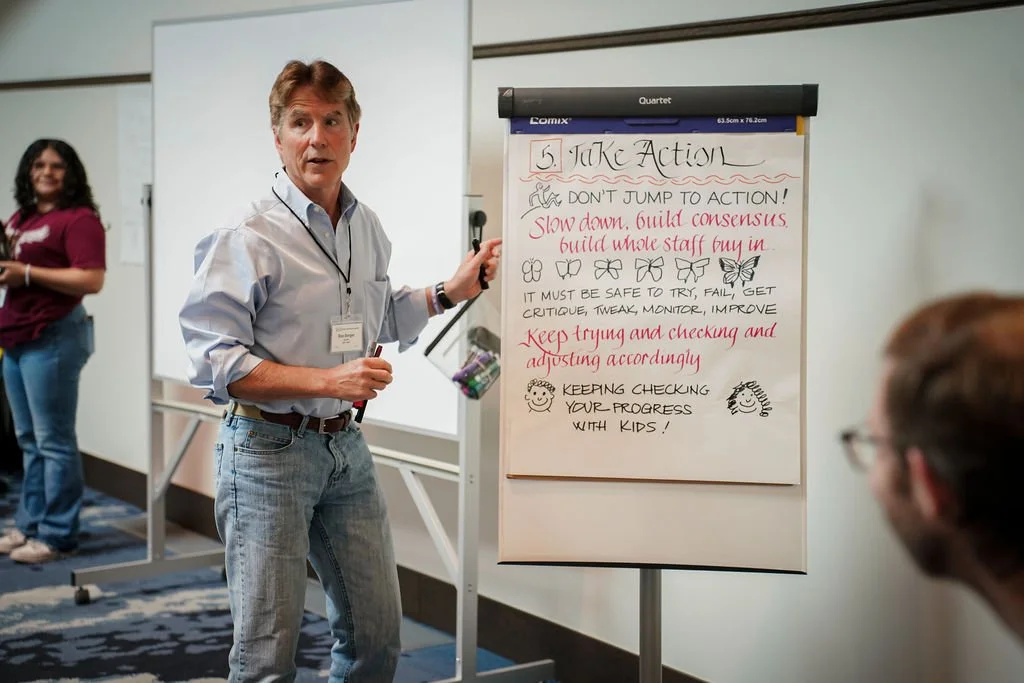 Quartet
COMIX
63.5cm x 76.2cm
5. Take Action
DON'T JUMP TO ACTION!
Slow down, build consensus,
build whole staff buy in...
IT MUST BE SAFE TO TRY, FAIL, GET
CRITIQUE, TWEAK, MONITOR, IMPROVE
Keep trying and checking and
adjusting accordingly
KEEPING CHECKING
YOUR PROGRESS
WITH KIDS!